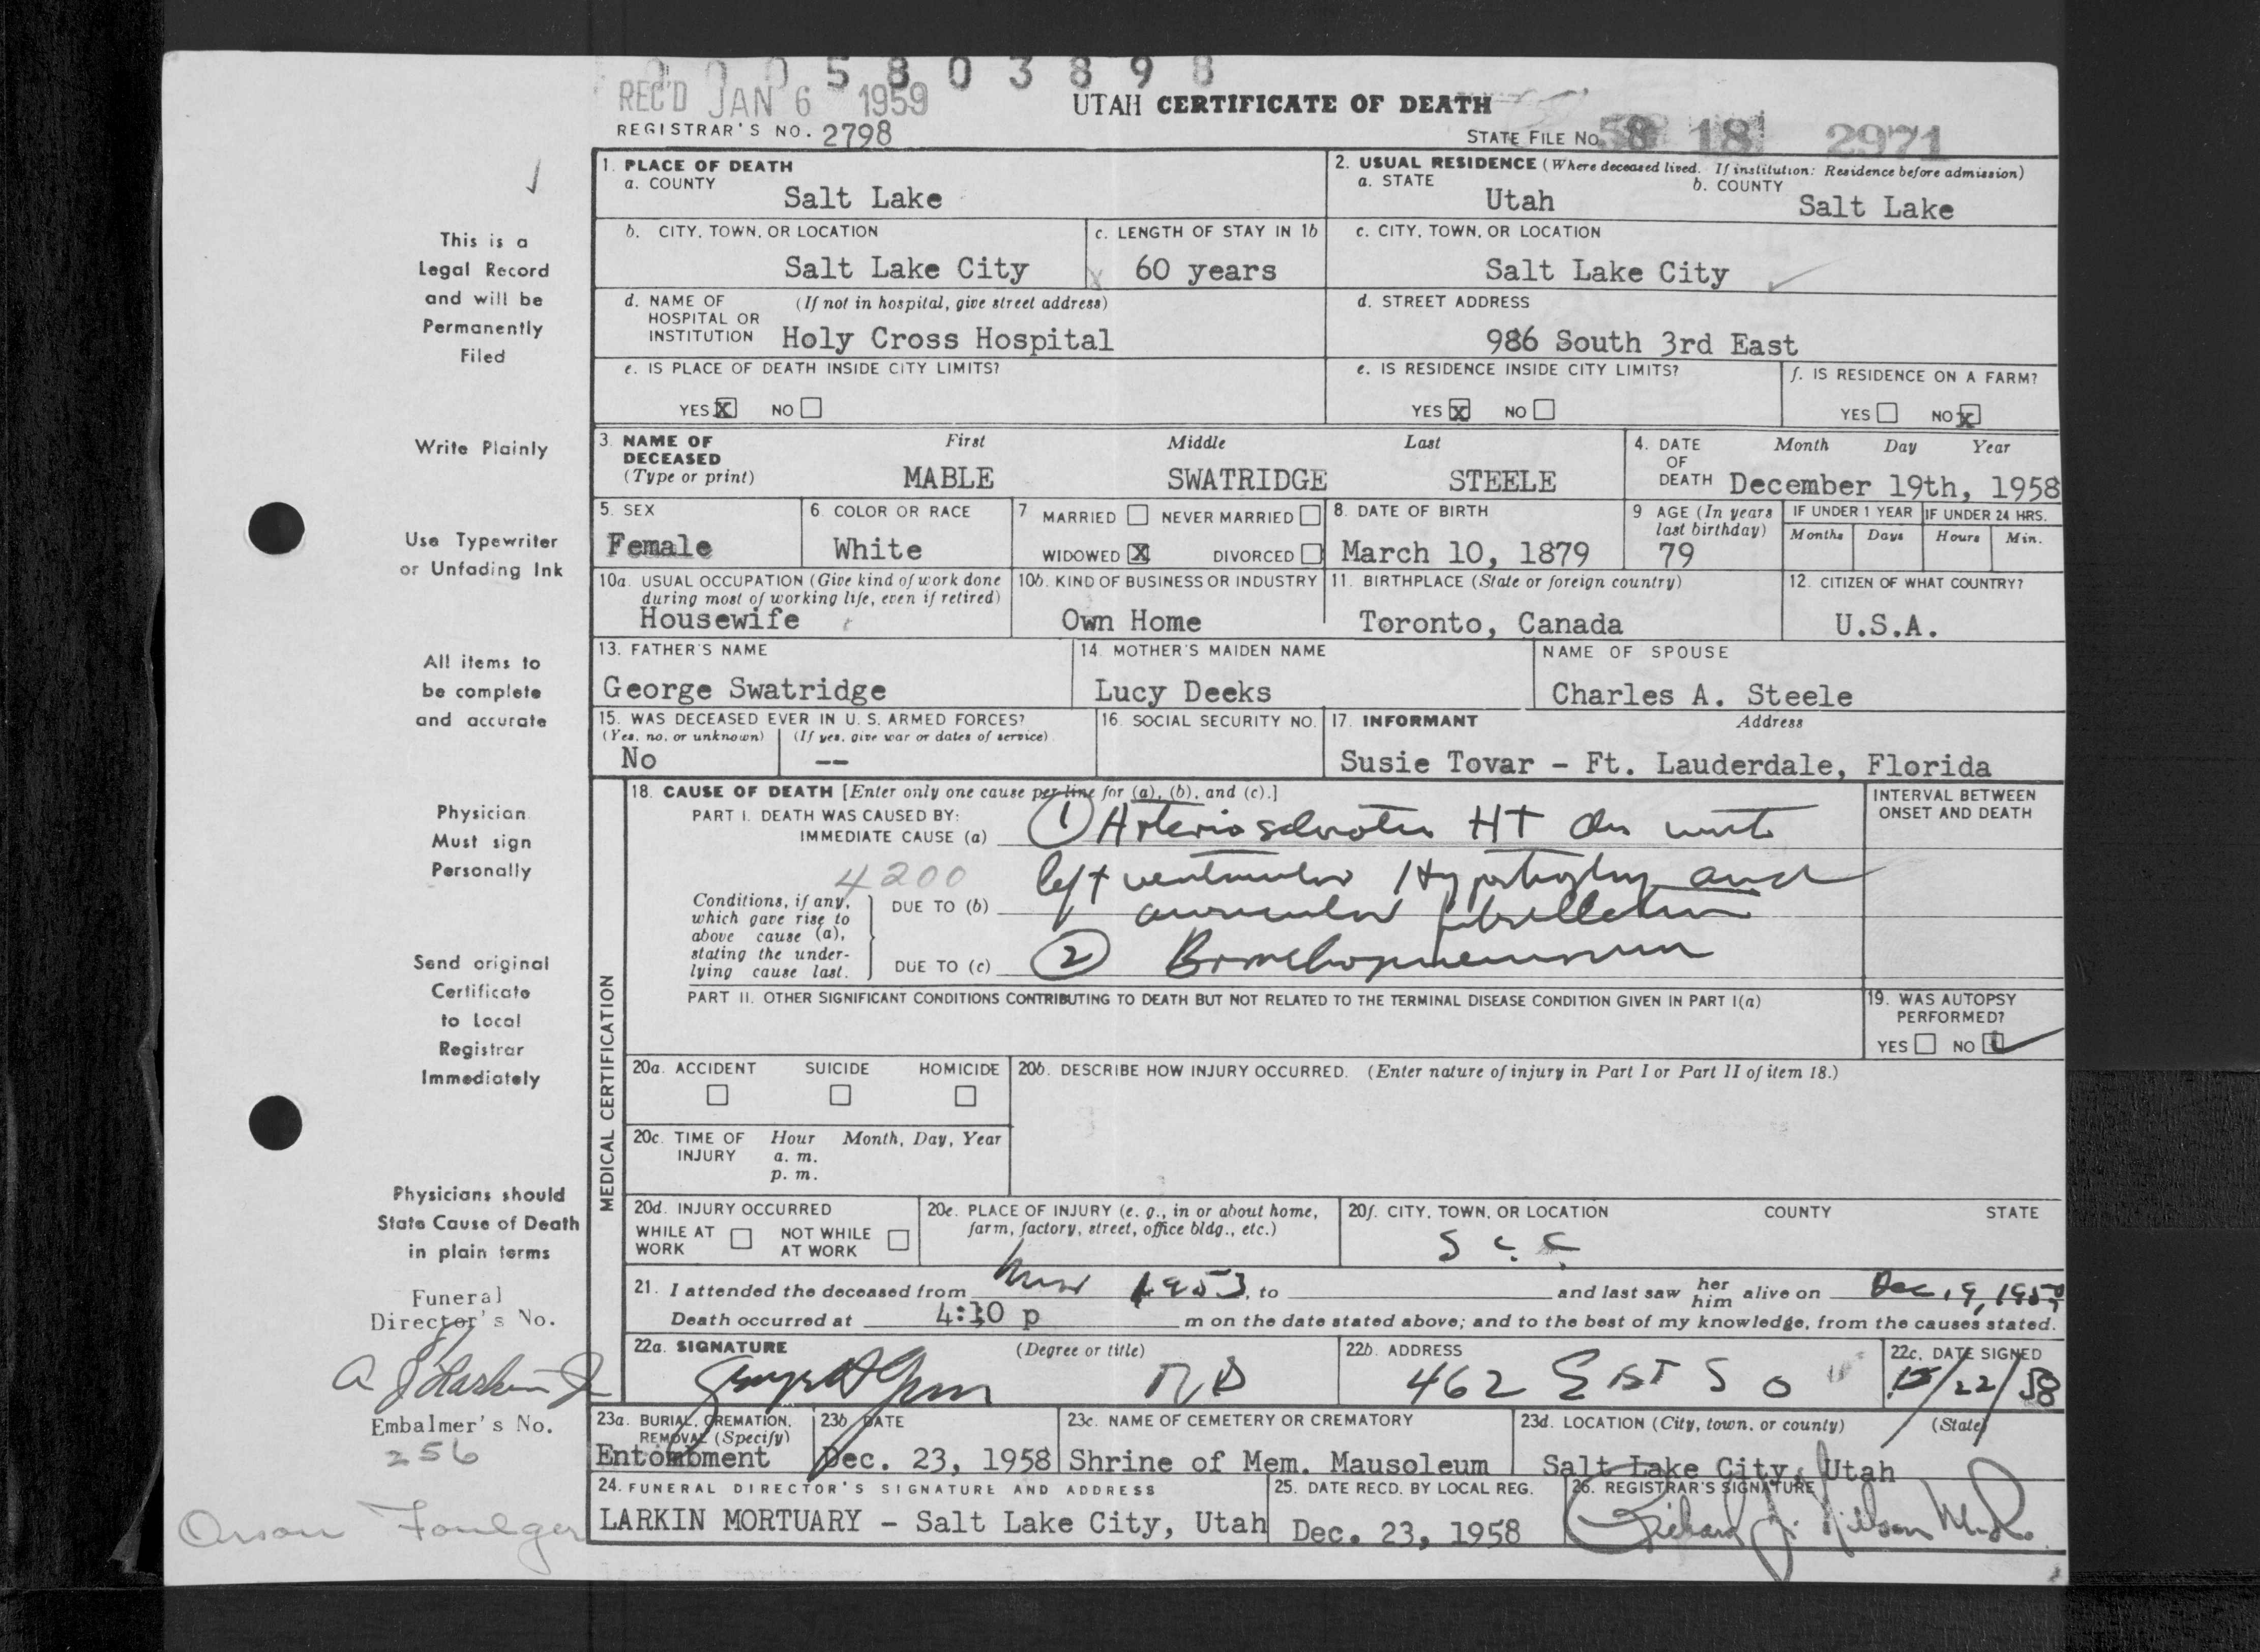 0 0 0 5 8 0 3 8 9 8
REC'D JAN 6 1959
UTAH CERTIFICATE OF DEATH
REGISTRAR'S NO. 2798
STATE FILE NO. 58 18 2971
1. PLACE OF DEATH
a. COUNTY
Salt Lake
2. USUAL RESIDENCE (Where deceased lived. If institution: Residence before admission)
a. STATE
Utah
b. COUNTY
Salt Lake
This is a
Legal Record
and will be
Permanently
Filed
b. CITY, TOWN, OR LOCATION
Salt Lake City
c. LENGTH OF STAY IN 1b
60 years
c. CITY, TOWN, OR LOCATION
Salt Lake City
d. NAME OF (If not in hospital, give street address)
HOSPITAL OR
INSTITUTION Holy Cross Hospital
d. STREET ADDRESS
986 South 3rd East
e. IS PLACE OF DEATH INSIDE CITY LIMITS?
YES X NO
e. IS RESIDENCE INSIDE CITY LIMITS?
YES X NO
f. IS RESIDENCE ON A FARM?
YES NO X
Write Plainly
3. NAME OF DECEASED
(Type or print)
First Middle Last
MABLE SWATRIDGE STEELE
4. DATE OF DEATH
Month Day Year
December 19th, 1958
Use Typewriter
or Unfading Ink
5. SEX
Female
6. COLOR OR RACE
White
7 MARRIED NEVER MARRIED
WIDOWED X DIVORCED
8. DATE OF BIRTH
March 10, 1879
9 AGE (In years
last birthday)
79
IF UNDER 1 YEAR IF UNDER 24 HRS.
Months Days Hours Min.
10a. USUAL OCCUPATION (Give kind of work done
during most of working life, even if retired)
Housewife
10b. KIND OF BUSINESS OR INDUSTRY
Own Home
11. BIRTHPLACE (State or foreign country)
Toronto, Canada
12. CITIZEN OF WHAT COUNTRY?
U.S.A.
All items to
be complete
and accurate
13. FATHER'S NAME
George Swatridge
14. MOTHER'S MAIDEN NAME
Lucy Deeks
NAME OF SPOUSE
Charles A. Steele
15. WAS DECEASED EVER IN U. S. ARMED FORCES?
(Yes, no, or unknown) (If yes, give war or dates of service)
No --
16. SOCIAL SECURITY NO.
17. INFORMANT Address
Susie Tovar - Ft. Lauderdale, Florida
Physician
Must sign
Personally
MEDICAL CERTIFICATION
18. CAUSE OF DEATH [Enter only one cause per line for (a), (b), and (c).]
PART I. DEATH WAS CAUSED BY:
IMMEDIATE CAUSE (a) 1 Arteriosclerotic HT dis with
4200 left ventricular Hypertrophy and
Conditions, if any,
which gave rise to
above cause (a),
stating the under-
lying cause last.
DUE TO (b) auricular fibrillation
DUE TO (c) 2 Bronchopneumonia
INTERVAL BETWEEN
ONSET AND DEATH
Send original
Certificate
to Local
Registrar
Immediately
PART II. OTHER SIGNIFICANT CONDITIONS CONTRIBUTING TO DEATH BUT NOT RELATED TO THE TERMINAL DISEASE CONDITION GIVEN IN PART I(a)
19. WAS AUTOPSY
PERFORMED?
YES NO
20a. ACCIDENT SUICIDE HOMICIDE
20b. DESCRIBE HOW INJURY OCCURRED. (Enter nature of injury in Part I or Part II of item 18.)
20c. TIME OF INJURY
Hour Month, Day, Year
a. m.
p. m.
Physicians should
State Cause of Death
in plain terms
20d. INJURY OCCURRED
WHILE AT WORK NOT WHILE AT WORK
20e. PLACE OF INJURY (e. g., in or about home,
farm, factory, street, office bldg., etc.)
20f. CITY, TOWN, OR LOCATION COUNTY STATE
21. I attended the deceased from 1953, to and last saw her him alive on Dec. 9, 195
Death occurred at 4:30 p m on the date stated above; and to the best of my knowledge, from the causes stated.
Funeral
Director's No.
A J Larkin Jr
22a. SIGNATURE (Degree or title)
MD
22b. ADDRESS
462 East So
22c. DATE SIGNED
12/22/58
Embalmer's No.
256
Orson Foulger
23a. BURIAL, CREMATION,
REMOVAL (Specify)
Entombment
23b DATE
Dec. 23, 1958
23c. NAME OF CEMETERY OR CREMATORY
Shrine of Mem. Mausoleum
23d. LOCATION (City, town, or county) (State)
Salt Lake City, Utah
24. FUNERAL DIRECTOR'S SIGNATURE AND ADDRESS
LARKIN MORTUARY - Salt Lake City, Utah
25. DATE RECD. BY LOCAL REG.
Dec. 23, 1958
26. REGISTRAR'S SIGNATURE
Richard J. Nilson M.D.